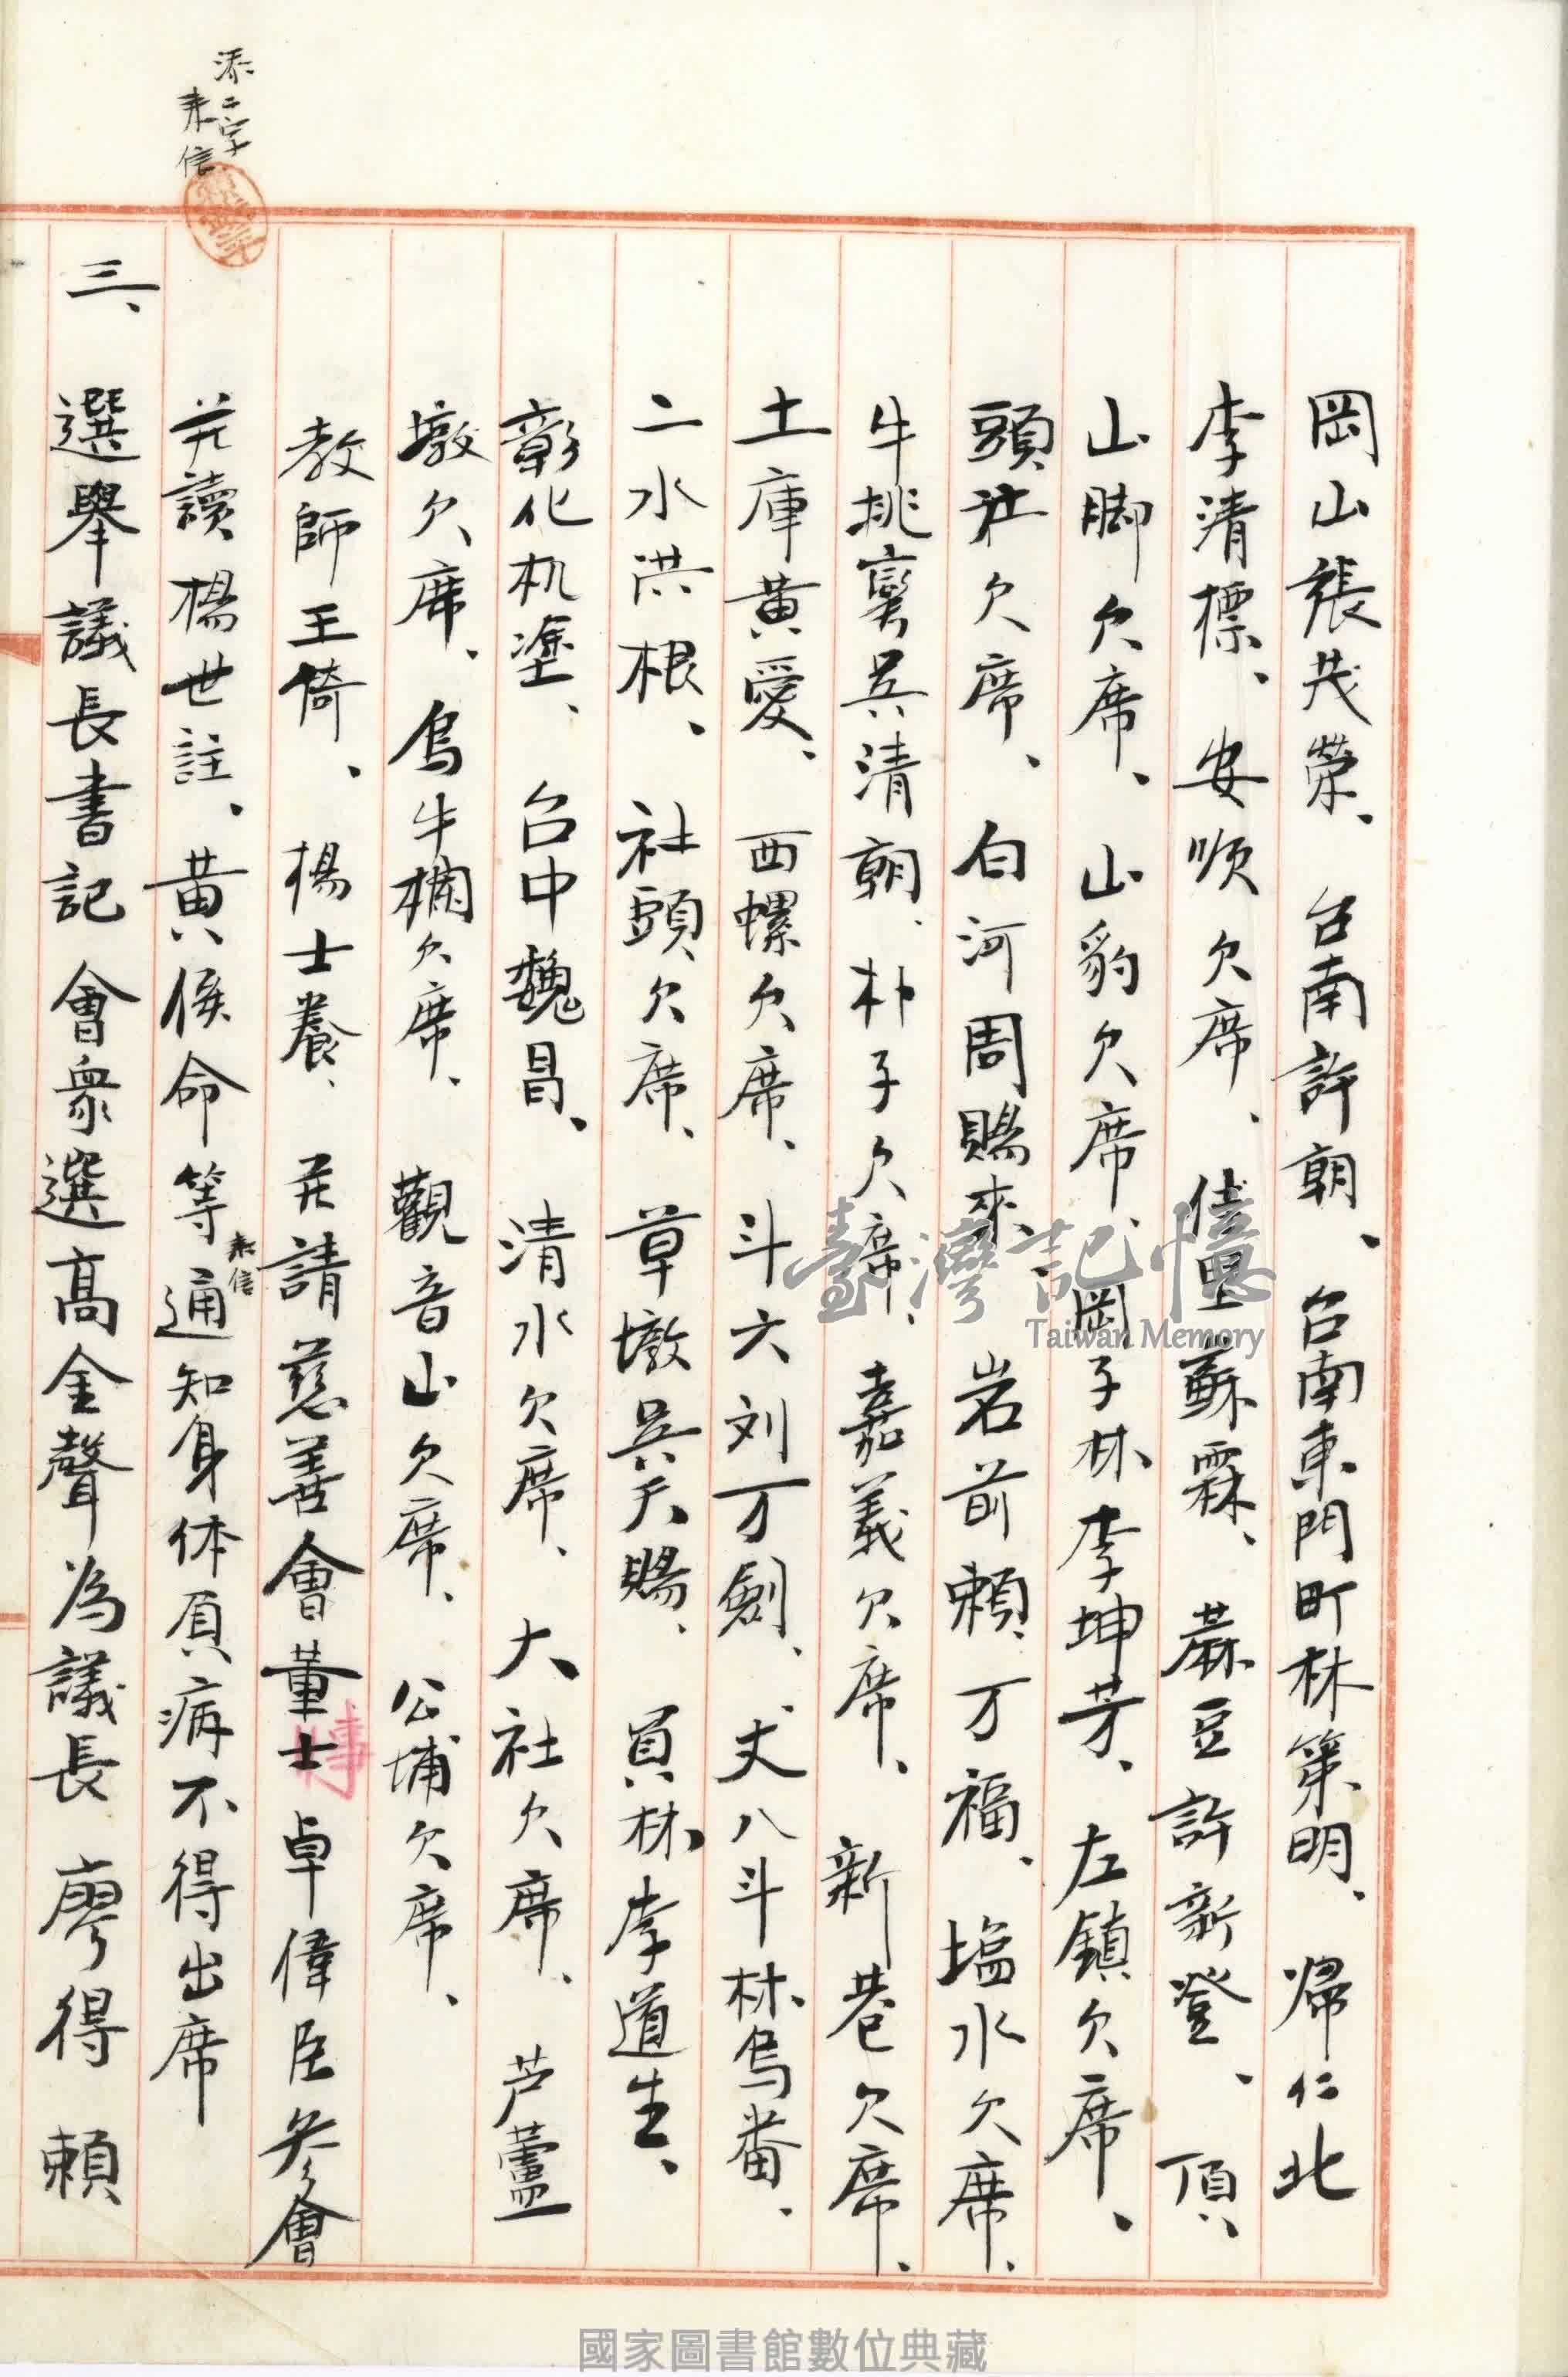 添二字
来信
岡山張茂榮、台南許朝、台南東門町林第明、帰仁北
李清標、安順欠席、佳里蘇霖、蔴豆許新登、頂
山脚欠席、山豹欠席、岡子林李坤芳、左鎮欠席、
頭社欠席、白河周賜來、岩前賴万福、塩水欠席、
牛挑灣吳清朝、朴子欠席、嘉義欠席、新巷欠席、
土庫黃愛、西螺欠席、斗六刘万劍、丈八斗林烏番、
二水洪根、社頭欠席、草墩吳天賜、員林李道生、
彰化机塗、台中魏昌、清水欠席、大社欠席、芦蘆
墩欠席、烏牛欄欠席、觀音山欠席、公埔欠席、
教師王倚、楊士養、并請慈善會董士博卓偉臣参會
并讀楊世註、黃俟命等来信通知身体原病不得出席
三、選舉議長書記 會衆選高金聲為議長 廖得 賴
臺灣記憶
Taiwan Memory
國家圖書館數位典藏